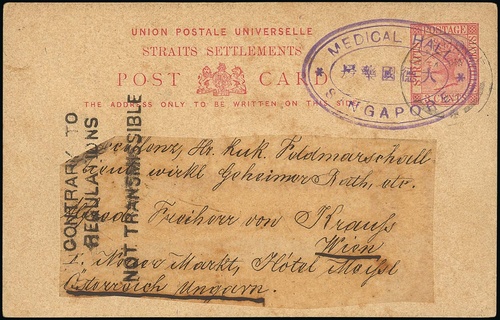 UNION POSTALE UNIVERSELLE
STRAITS SETTLEMENTS
POST CARD
THE ADDRESS ONLY TO BE WRITTEN ON THIS SIDE
MEDICAL HALL
SINGAPORE
CONTRARY TO
REGULATIONS
NOT TRANSMISSIBLE
Hr. Kuk. Feldmarschall
wirkl Geheimer Rath, etc.
Freiherr von Krauss
Wien
Neuer Markt, Hôtel Meissl
Österreich Ungarn.